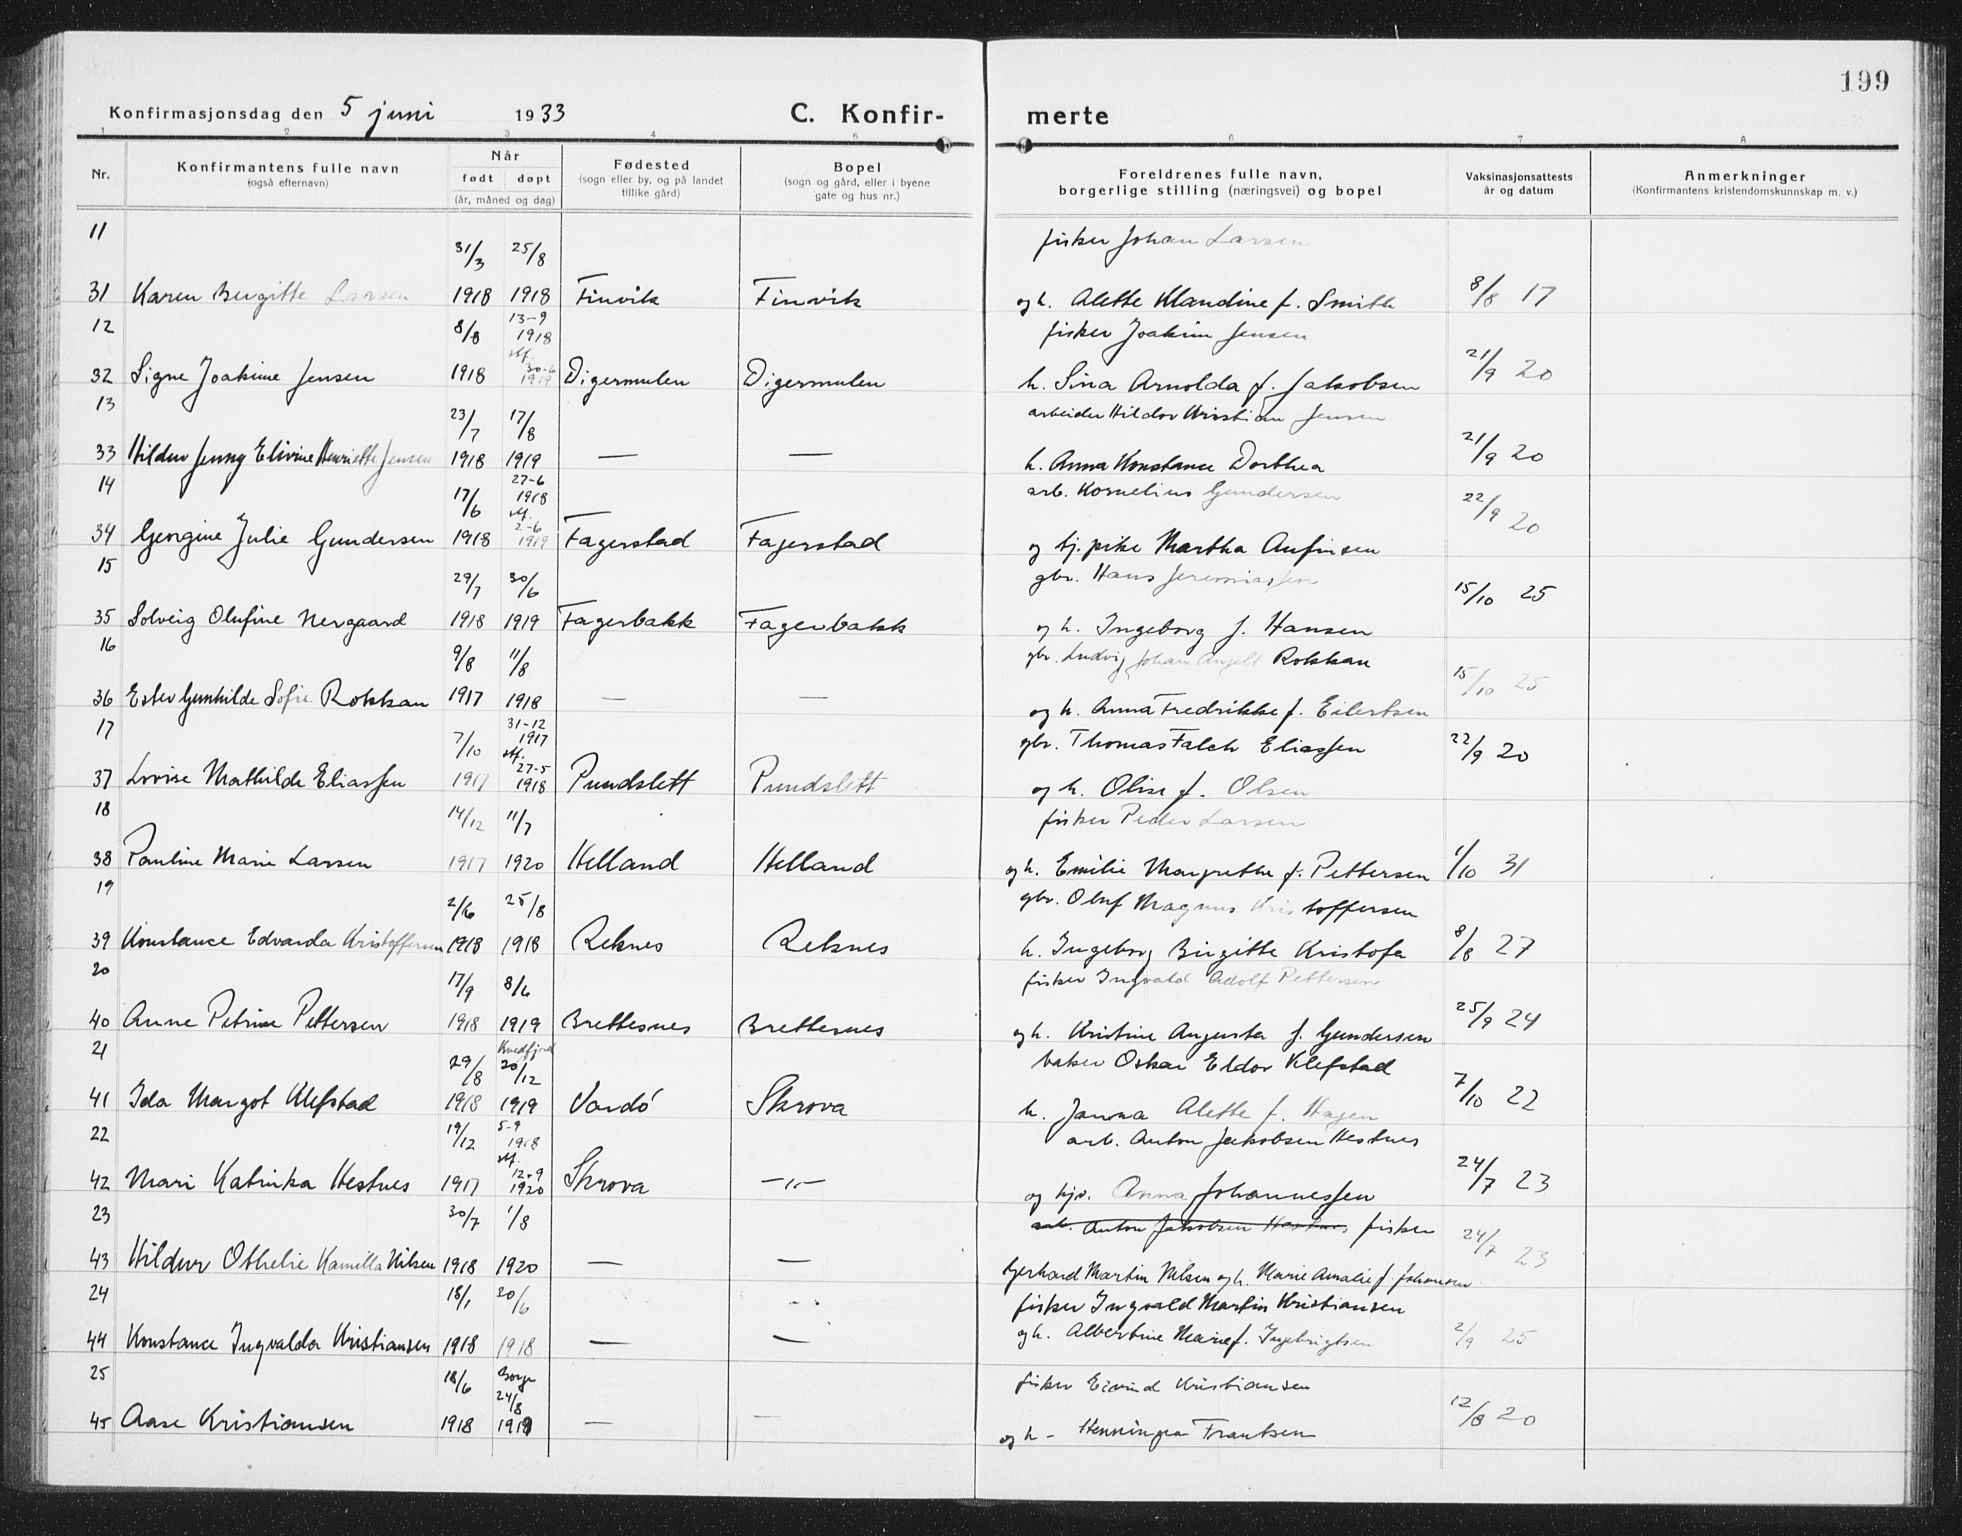 199
Konfirmasjonsdag den 5 juni 1933 C. Konfir- merte
1 2 3 4 5 6 7 8
Nr. Konfirmantens fulle navn (også efternavn) Når født døpt (år, måned og dag) Fødested (sogn eller by, og på landet tillike gård) Bopel (sogn og gård, eller i byene gate og hus nr.) Foreldrenes fulle navn, borgerlige stilling (næringsvei) og bopel Vaksinasjonsattests år og datum Anmerkninger (Konfirmantens kristendomskunnskap m. v.)
11 31/3 25/8 fisker Johan Larsen
31 Karen Bergitte Larsen 1918 1918 Finvik Finvik og h. Alette Klandine f. Smith 8/8 17
12 8/8 13-9 1918 fisker Joakim Jensen
32 Signe Joakime Jensen 1918 stf. 30-6 1919 Digermulen Digermulen h. Sina Arnolda f. Jakobsen 21/9 20
13 23/7 17/8 arbeider Hildor Kristian Jensen
33 Hildur Jenny Elivine Henriette Jensen 1918 1919 — — h. Anna Konstance Dorthea 21/9 20
14 17/6 27-6 1918 arb. Kornelius Gundersen
34 Georgine Julie Gundersen 1918 stf. 2-6 1919 Fagerstad Fagerstad og tj. pike Martha Anfinsen 22/9 20
15 29/7 30/6 gbr. Hans Jeremiassen
35 Solveig Olufine Nergaard 1918 1919 Fagerbakk Fagerbakk og h. Ingeborg f. Hansen 15/10 25
16 9/8 11/8 gbr. Ludvig Johan Angell Rokkan
36 Ester Gunhilde Sofie Rokkan 1917 1918 — — og h. Anna Fredrikke f. Eilertsen 15/10 25
17 7/10 31-12 1917 gbr. Thomas Falch Eliassen
37 Lovise Mathilde Eliassen 1917 stf. 27-5 1918 Pundslett Pundslett og h. Olise f. Olsen 22/9 20
18 14/12 11/7 fisker Peder Larsen
38 Pauline Marie Larsen 1917 1920 Helland Helland og h. Emilie Margrethe f. Pettersen 1/10 31
19 2/6 25/8 gbr. Oluf Magnus Kristoffersen
39 Konstance Edvarda Kristoffersen 1918 1918 Reknes Reknes h. Ingeborg Birgitte Kristofa 8/8 27
20 17/9 8/6 fisker Ingvald Adolf Pettersen
40 Anne Petrine Pettersen 1918 1919 Brettesnes Brettesnes og h. Kristine Augusta f. Gundersen 25/9 24
21 29/8 Kvedfjord 20/12 baker Oskar Eldor Klefstad
41 Ida Margot Klefstad 1918 1919 Vardö Skrova h. Janna Alette f. Hagen 7/10 22
22 19/12 5-9 1918 arb. Anton Jakobsen Hestnes
42 Mari Katinka Hestnes 1917 stf. 12-9 1920 Skrova —"— og hjv. Anna Johannessen 24/7 23
23 30/7 1/8 arb. Anton Jakobsen Hestnes fisker
43 Hildur Othelie Kamilla Nilsen 1918 1920 — — Gerhard Martin Nilsen og h. Marie Amalie f. Johansen 24/7 23
24 18/1 20/6 fisker Ingvald Martin Kristiansen
44 Konstance Ingvalda Kristiansen 1918 1918 — — og h. Albertine Marie f. Ingebrigtsen 2/9 25
25 18/6 Borge 24/8 fisker Eivind Kristiansen
45 Aase Kristiansen 1918 1919 — — og h - Henningea Frantsen 12/8 20